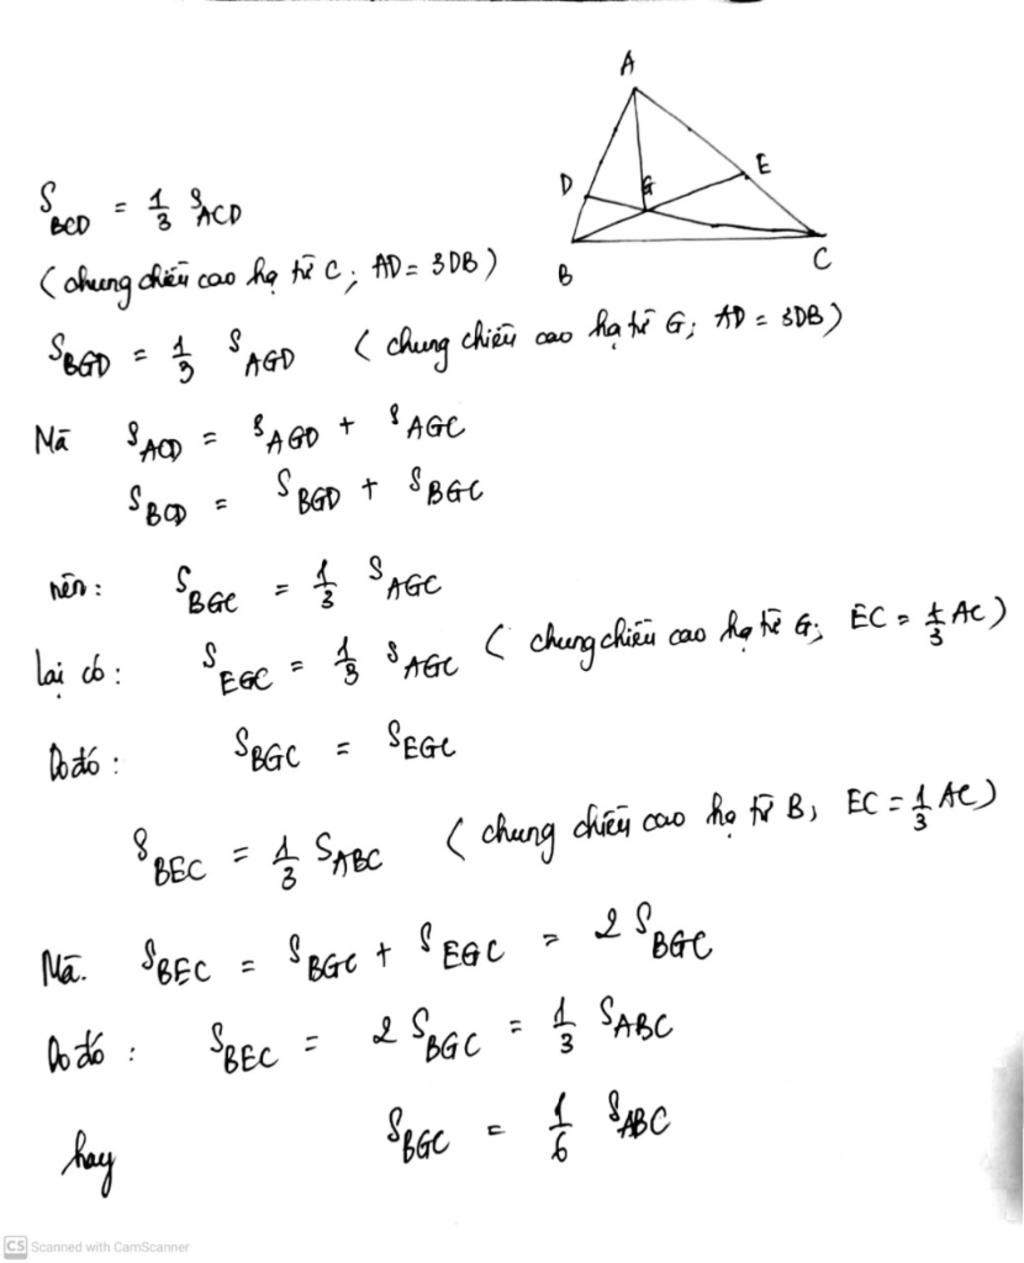 A
D
E
G
B
C
S_BCD = 1/3 S_ACD
( chung chiều cao hạ từ C; AD = 3DB )
S_BGD = 1/3 S_AGD ( chung chiều cao hạ từ G; AD = 3DB )
Mà S_ACD = S_AGD + S_AGC
S_BCD = S_BGD + S_BGC
nên: S_BGC = 1/3 S_AGC
lại có: S_EGC = 1/3 S_AGC ( chung chiều cao hạ từ G; EC = 1/3 AC )
Do đó: S_BGC = S_EGC
S_BEC = 1/3 S_ABC ( chung chiều cao hạ từ B, EC = 1/3 AC )
Mà. S_BEC = S_BGC + S_EGC = 2 S_BGC
Do đó: S_BEC = 2 S_BGC = 1/3 S_ABC
hay S_BGC = 1/6 S_ABC
CS Scanned with CamScanner